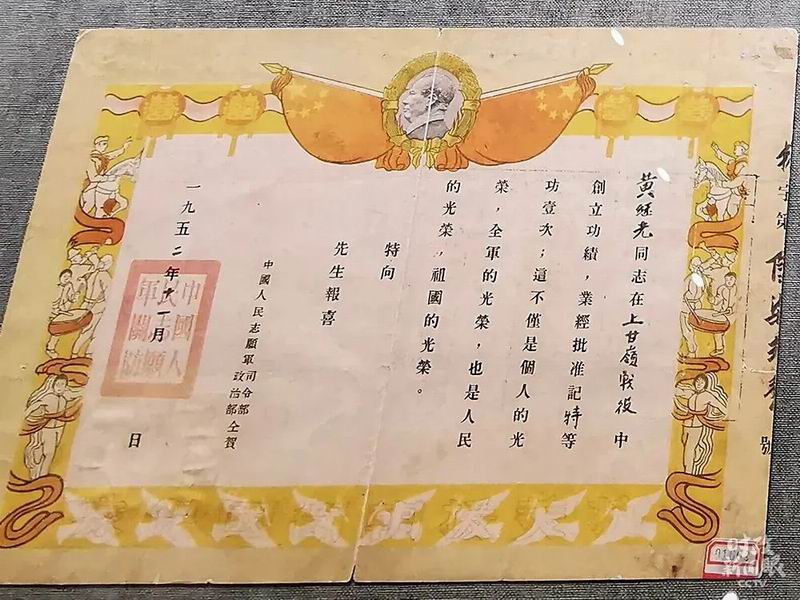 字第
號
黃继光同志在上甘嶺戰役中
創立功績，業經批准記特等
功壹次；這不僅是個人的光
榮，全軍的光榮，也是人民
的光榮，祖國的光榮。
特向
先生報喜
中國人民志願軍司令部
政治部仝賀
一九五二年十一月　日
中國人
民志願
軍關防
时政
新闻眼
CCTV